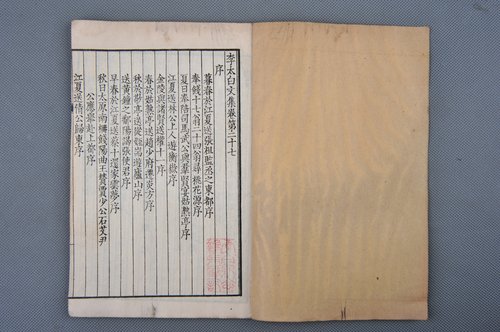 李太白文集卷第二十七
序
暮春於江夏送張祖監丞之東都序
奉餞十七翁二十四翁尋桃花源序
夏日奉陪司馬武公與羣賢宴姑熟亭序
江夏送林公上人遊衡嶽序
金陵與諸賢送權十一序
春於姑熟送趙少府遷炎方序
秋於敬亭送從姪耑遊廬山序
送黃鐘之鄱陽謁張使君序
早春於江夏送蔡十還家雲夢序
秋日太原南柵餞陽曲王贊公賈少公石艾尹
少公應舉赴上都序
江夏送倩公歸漢東序